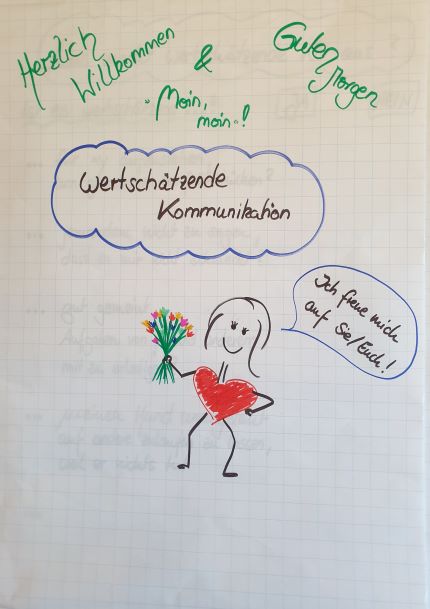 Herzlich
Willkommen
&
Guten
Morgen
"Moin,
moin"!
Wertschätzende
Kommunikation
Ich freue mich
auf Sie/Euch!